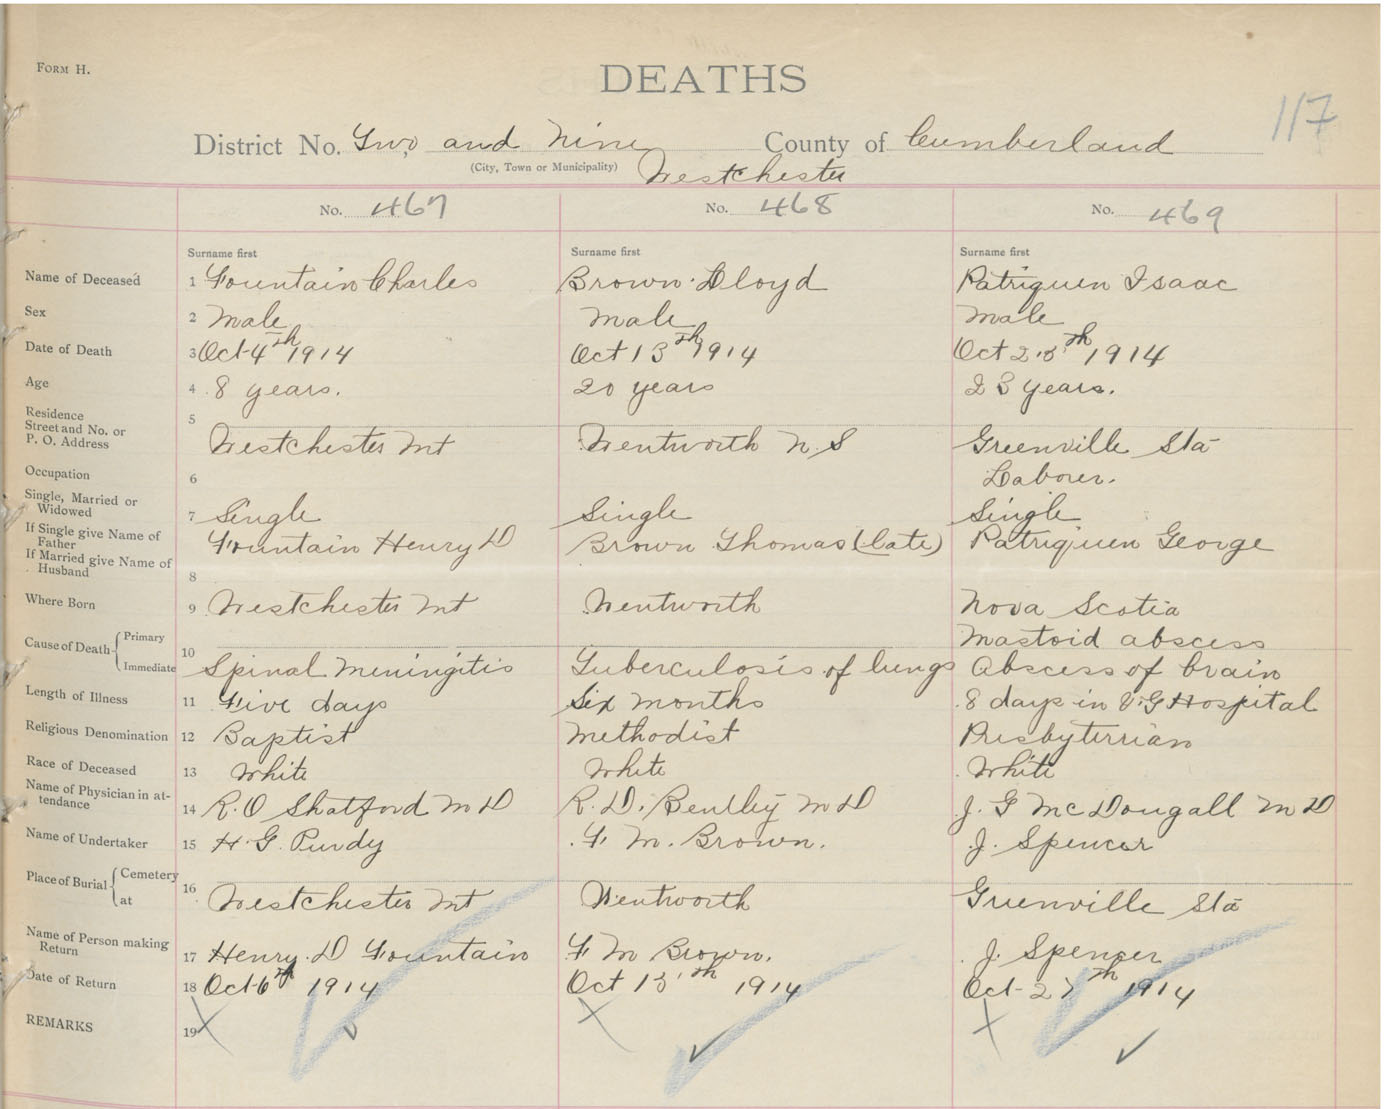 FORM H.
DEATHS
117
District No. Two and Nine County of Cumberland
(City, Town or Municipality) Westchester
No. 467 No. 468 No. 469
Surname first Surname first Surname first
Name of Deceased 1 Fountain Charles Brown Lloyd Patriquen Isaac
Sex 2 Male Male Male
Date of Death 3 Oct 4th 1914 Oct 13th 1914 Oct 25th 1914
Age 4 8 years. 20 years 23 years.
Residence
Street and No. or 5
P. O. Address Westchester Mt Wentworth N.S Greenville Sta
Occupation 6 Laborer.
Single, Married or
Widowed 7 Single Single Single
If Single give Name of
Father Fountain Henry D Brown Thomas (Late) Patriquen George
If Married give Name of
Husband 8
Where Born 9 Westchester Mt Wentworth Nova Scotia
Cause of Death Primary 10 Mastoid abscess
Immediate Spinal Meningitis Tuberculosis of lungs Abscess of brain
Length of Illness 11 Five days Six months 8 days in V.G Hospital
Religious Denomination 12 Baptist Methodist Presbyterrian
Race of Deceased 13 White White White
Name of Physician in at-
tendance 14 R.O Shatford M D R. D. Bentley M D J. G McDougall M D
Name of Undertaker 15 H. G. Purdy F. M. Brown. J. Spencer
Place of Burial Cemetery 16
at Westchester Mt Wentworth Greenville Sta
Name of Person making
Return 17 Henry. D Fountain F M Brown. J. Spencer
Date of Return 18 Oct 6th 1914 Oct 15th 1914 Oct 27th 1914
REMARKS 19